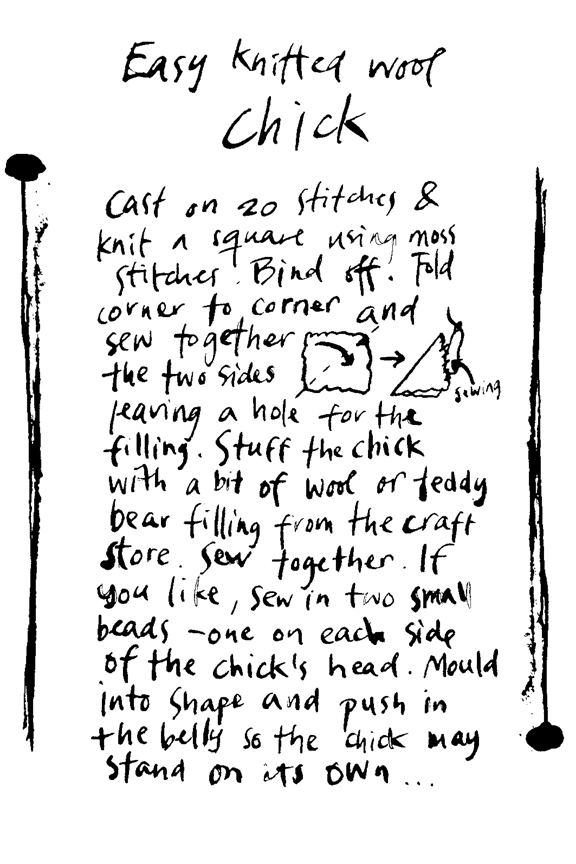 Easy knitted wool
Chick
Cast on 20 stitches &
knit a square using moss
stitches. Bind off. Fold
corner to corner and
sew together
the two sides
sewing
leaving a hole for the
filling. Stuff the chick
with a bit of wool or teddy
bear filling from the craft
store. Sew together. If
you like, sew in two small
beads - one on each side
of the chick's head. Mould
into shape and push in
the belly so the chick may
stand on its own...